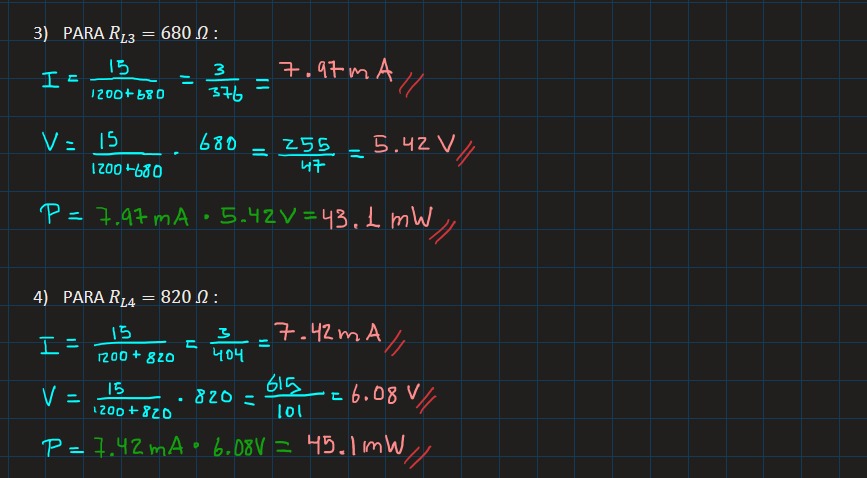 3) PARA R_L3 = 680 Ω :
I = 15/(1200+680) = 3/376 = 7.97 mA //
V = 15/(1200+680) · 680 = 255/47 = 5.42 V //
P = 7.97 mA · 5.42 V = 43.1 mW //
4) PARA R_L4 = 820 Ω :
I = 15/(1200 + 820) = 3/404 = 7.42 mA //
V = 15/(1200+820) · 820 = 615/101 = 6.08 V //
P = 7.42 mA · 6.08V = 45.1 mW //